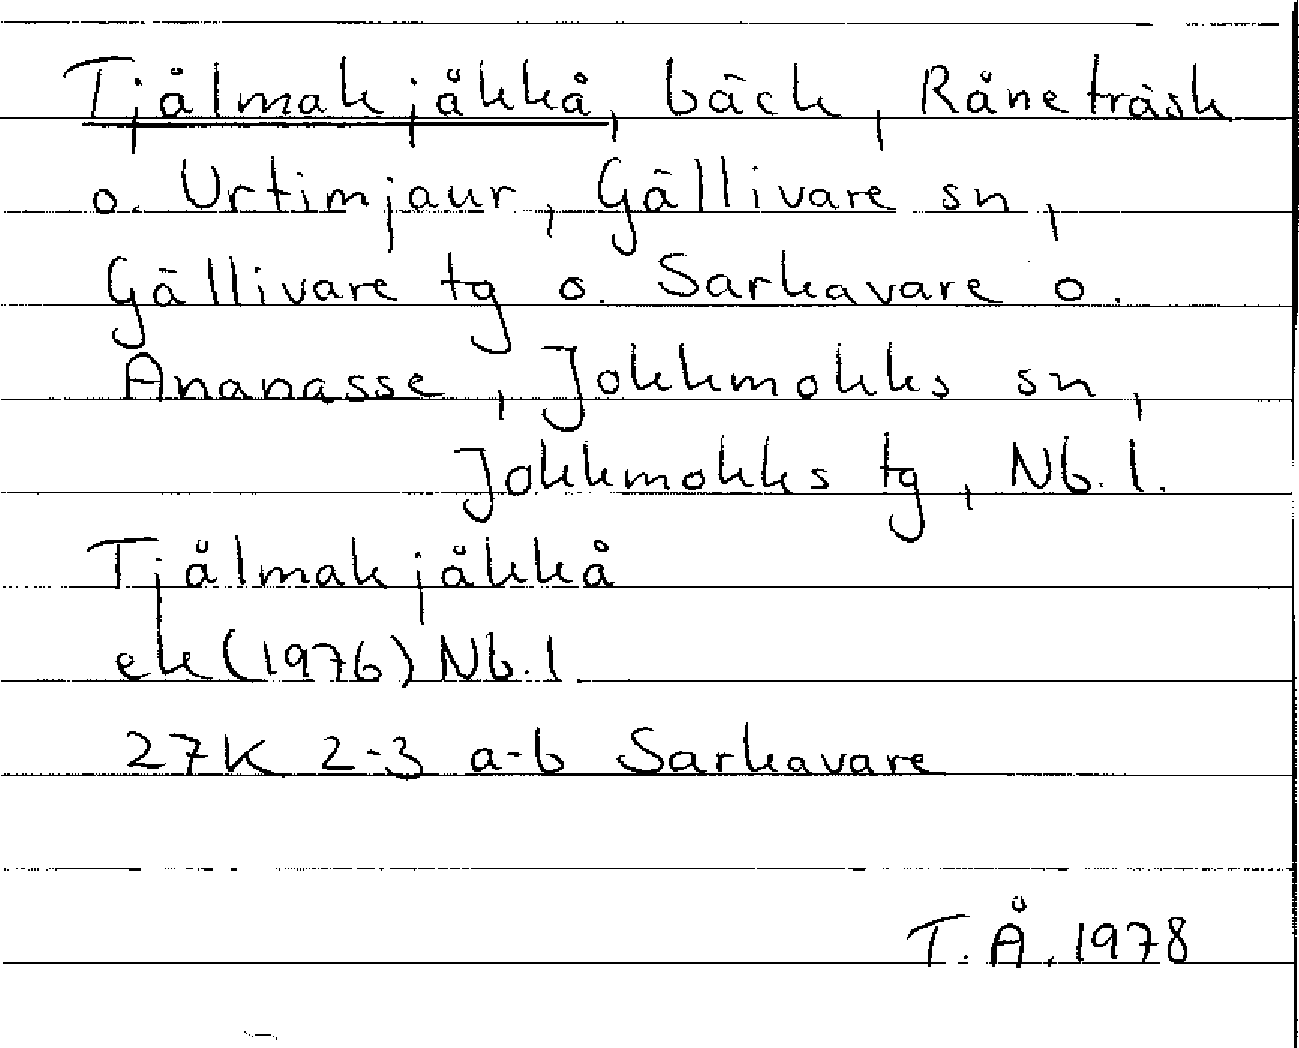 Tjålmakjåkkå, bäck, Råneträsk
o. Urtimjaur, Gällivare sn,
Gällivare tg o. Sarkavare o.
Ananasse, Jokkmokks sn,
Jokkmokks tg, Nb.l.
Tjålmakjåkkå
ek (1976) Nb.l
27K 2-3 a-b Sarkavare
T.Å. 1978